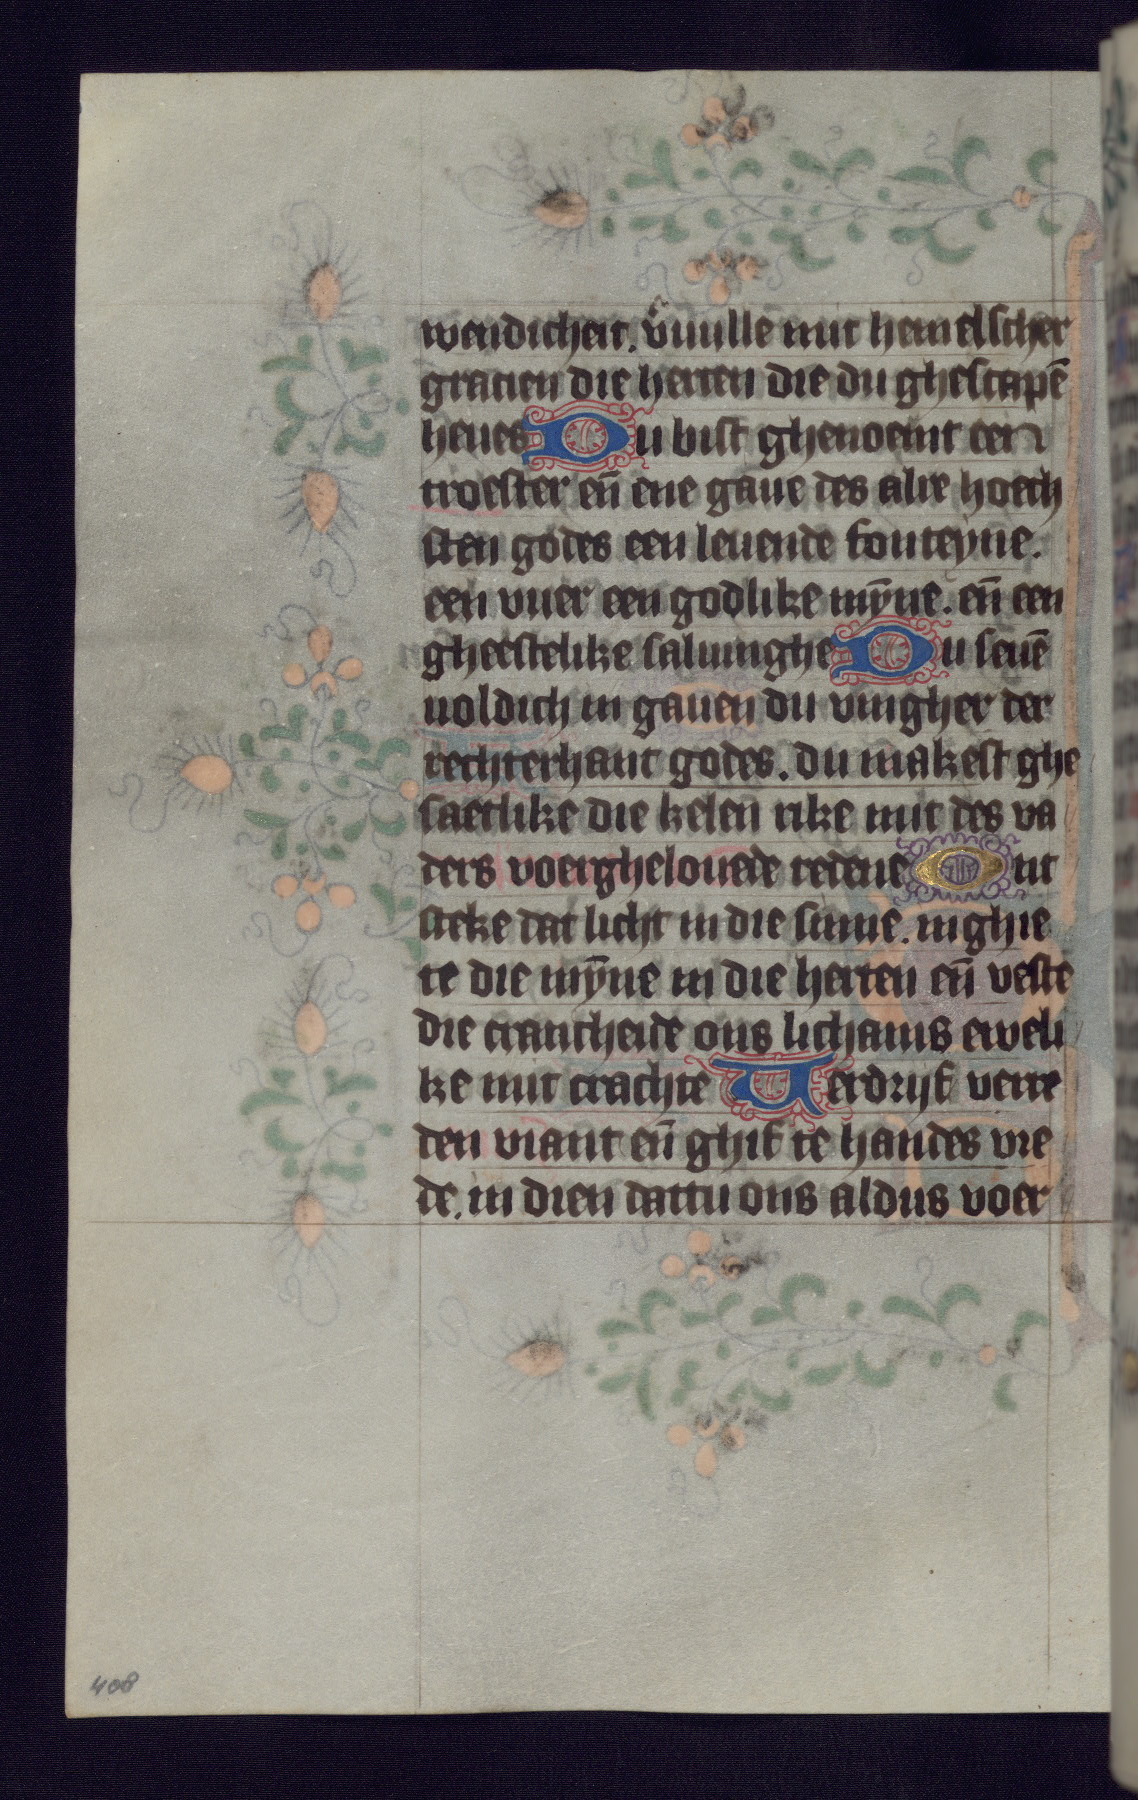 wendicheit. v̾uulle mit hemelscher
gracien die herten die du ghescapē
heues Du bist ghenoemt der
troester eñ ene gaue des alre hoech
sten godes een leuende fonteyne.
een vuer een godlike mȳne. eñ een
gheestelike saluinghe Du seuē
uoldich in gauen du vingher der
rechterhant godes. du makest ghe
saetlike die kelen rike mit des va
ders voerghelouede redene Ont
steke dat licht in die sinne. in ghie
te die mȳne in die herten eñ veste
die crancheide ons lichams eweli
ke mit crachte Verdrijf verre
den viant eñ ghif te handes vre
de. in dien dattu ons aldus voer
408